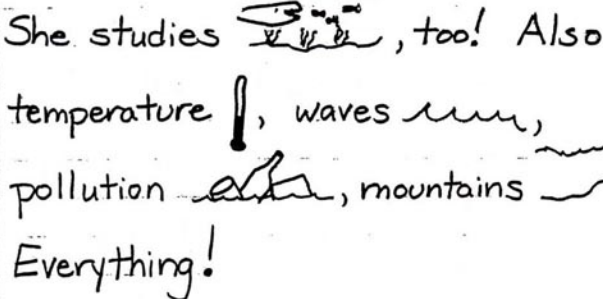 She studies , too! Also
temperature , waves ,
pollution , mountains
Everything!